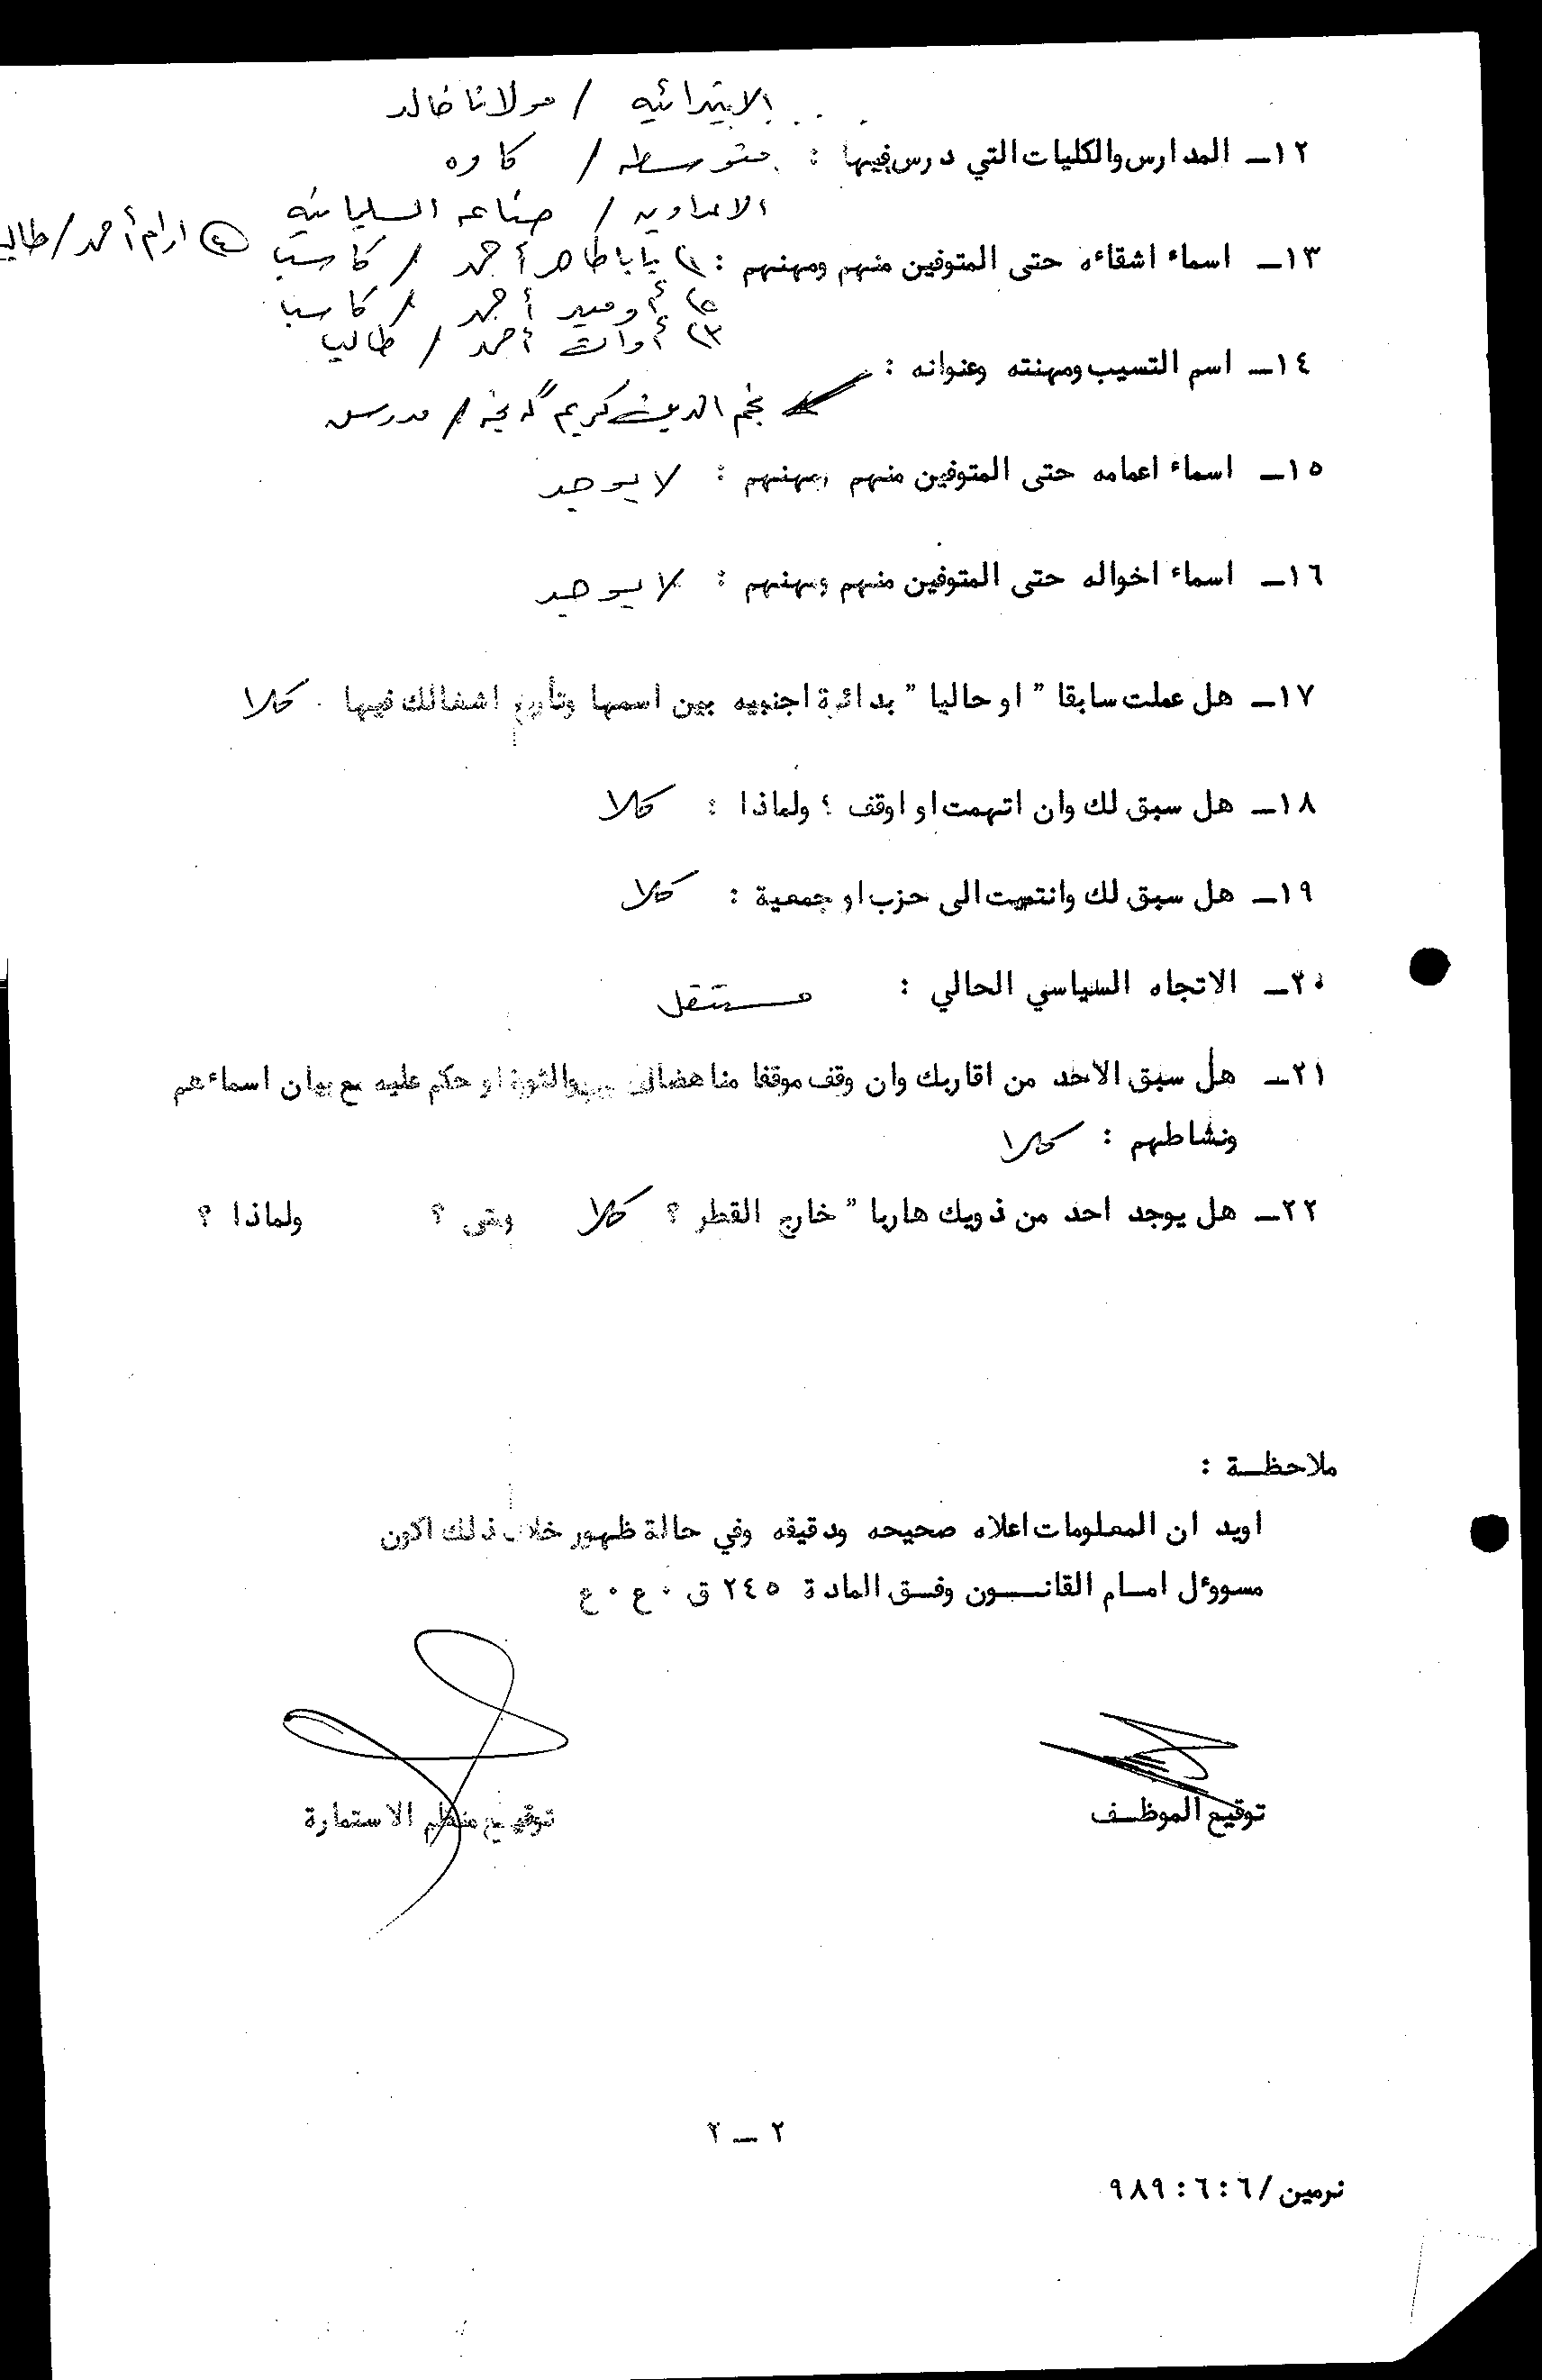 الابتدائيه / مولانا خالد
١٢ـ المدارس والكليات التي درس فيها : متوسطه / كاوه
الاعداديه / صناعه السليمانيه
١٣ـ اسماء اشقاءه حتى المتوفين منهم ومهنهم : ١) باباطاهر أحمد / كاسب ٤) ارام أحمد / طالب
٢) أوميد أحمد / كاسب
٣) أوات أحمد / طالب
١٤ـ اسم التسيب ومهنته وعنوانه :
نجم الدين كريم / مدرس
١٥ـ اسماء اعمامه حتى المتوفين منهم ومهنهم : لا يوجد
١٦ـ اسماء اخواله حتى المتوفين منهم ومهنهم : لا يوجد
١٧ـ هل عملت سابقا " او حاليا " بدائرة اجنبيه بين اسمها وتأريخ اشغالك فيها . كلا
١٨ـ هل سبق لك وان اتهمت او اوقف ؟ ولماذا : كلا
١٩ـ هل سبق لك وانتميت الى حزب او جمعية : كلا
٢٠ـ الاتجاه السياسي الحالي : مستقل
٢١ـ هل سبق الاحد من اقاربك وان وقف موقفا مناهضا والثورة او حكم عليه مع بيان اسماءهم
ونشاطهم : كلا
٢٢ـ هل يوجد احد من ذويك هاربا " خارج القطر ؟ كلا ومتى ؟ ولماذا ؟
ملاحظـة :
اويد ان المعلومات اعلاه صحيحه ودقيقه وفي حالة ظهور خلاف ذلك اكون
مسوول امـام القانـــون وفـق المادة ٢٤٥ ق ٠ ع ٠ ع
توقيع الموظـف توقيع منظم الاستمارة
٢ ـ ٢
نرمين /٦ : ٦ : ٩٨٩